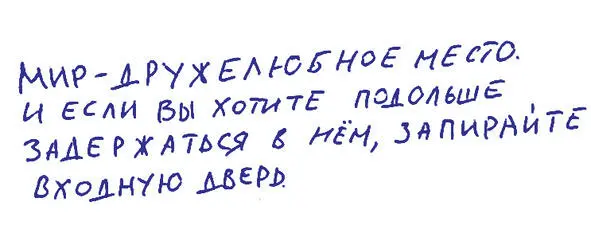 МИР-ДРУЖЕЛЮБНОЕ МЕСТО.
И ЕСЛИ ВЫ ХОТИТЕ ПОДОЛЬШЕ
ЗАДЕРЖАТЬСЯ В НЁМ, ЗАПИРАЙТЕ
ВХОДНУЮ ДВЕРЬ.